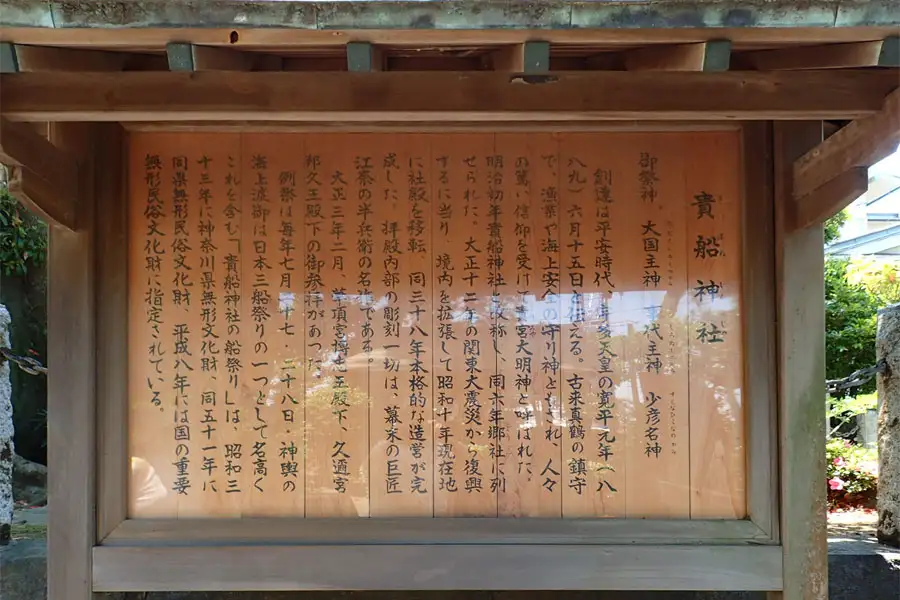 貴船神社
御祭神 大国主神 事代主神 少彦名神
創建は平安時代、宇多天皇の寛平元年(八
八九)六月十五日と伝える。古来真鶴の鎮守
で、漁業や海上安全の守り神ともされ、人々
の篤い信仰を受けて貴宮大明神と呼ばれた。
明治初年貴船神社と改称し、同六年郷社に列
せられた。大正十二年の関東大震災から復興
するに当り、境内を拡張して昭和十年現在地
に社殿を移転、同三十八年本格的な造営が完
成した。拝殿内部の彫刻一切は、幕末の巨匠
江奈の半兵衛の名作である。
大正三年二月、華頂宮博忠王殿下、久邇宮
邦久王殿下の御参拝があった。
例祭は毎年七月二十七・二十八日、神輿の
海上渡御は日本三船祭りの一つとして名高く
これを含む「貴船神社の船祭り」は、昭和三
十三年に神奈川県無形文化財、同五十一年に
同県無形民俗文化財、平成八年には国の重要
無形民俗文化財に指定されている。